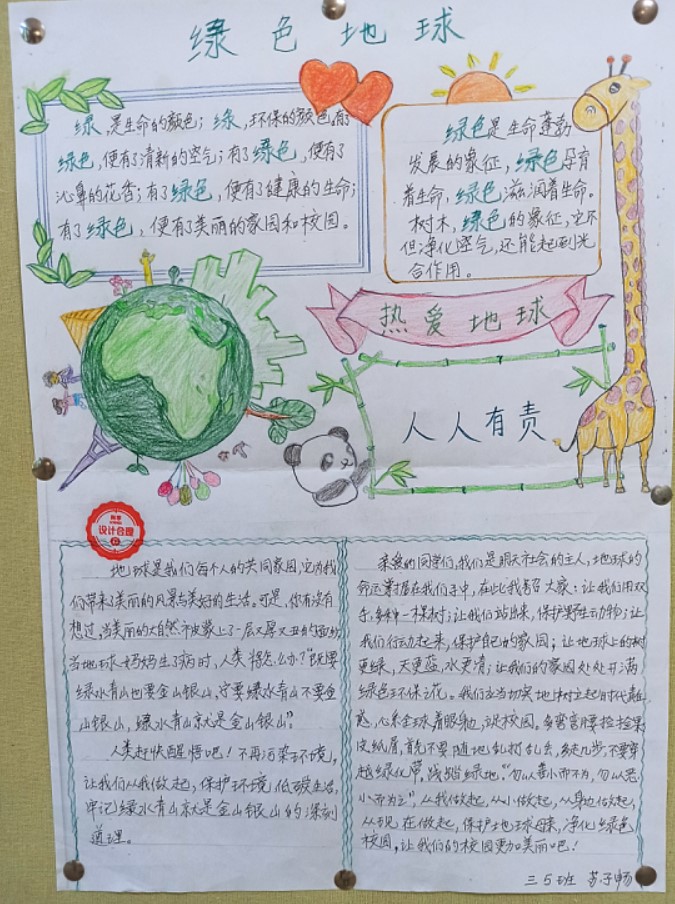 绿色地球
绿,是生命的颜色;绿,环保的颜色。有了
绿色,便有了清新的空气;有了绿色,便有了
沁鼻的花香;有了绿色,便有了健康的生命;
有了绿色,便有了美丽的家园和校园。
绿色是生命蓬勃
发展的象征,绿色孕育
着生命,绿色滋润着生命。
树木,绿色的象征,它不
但净化空气,还能起到光
合作用。
热爱地球
人人有责
设计合理
地球是我们每个人的共同家园,它为我
们带来了美丽的风景与美好的生活。可是,你有没有
想过,当美丽的大自然被蒙上了一层又厚又丑的面纱
当地球妈妈生了病时,人类将怎么办?"既要
绿水青山也要金山银山,宁要绿水青山不要金
山银山,绿水青山就是金山银山"。
人类赶快醒悟吧!不再污染环境,
让我们从我做起,保护环境,低碳生活,
牢记绿水青山就是金山银山的深刻
道理。
亲爱的同学们,我们是明天社会的主人,地球的
命运掌握在我们手中,在此我号召大家:让我们用双
手,多种一棵树;让我们站出来,保护野生动物;让
我们行动起来,保护自己的家园;让地球上的树
更绿,天更蓝,水更清;让我们的家园处处开满
绿色环保之花。我们应当切实地树立起时代
心系全球着眼
校园。多弯弯腰捡捡果
皮纸屑,首先不要随地乱扔乱丢,多走几步,不要穿
越绿化带,践踏绿地。"勿以善小而不为,勿以恶
小而为之",从我做起,从小做起,从身边做起,
从现在做起,保护地球母亲,净化绿色
校园,让我们的校园更加美丽吧!
三5班 苏子畅